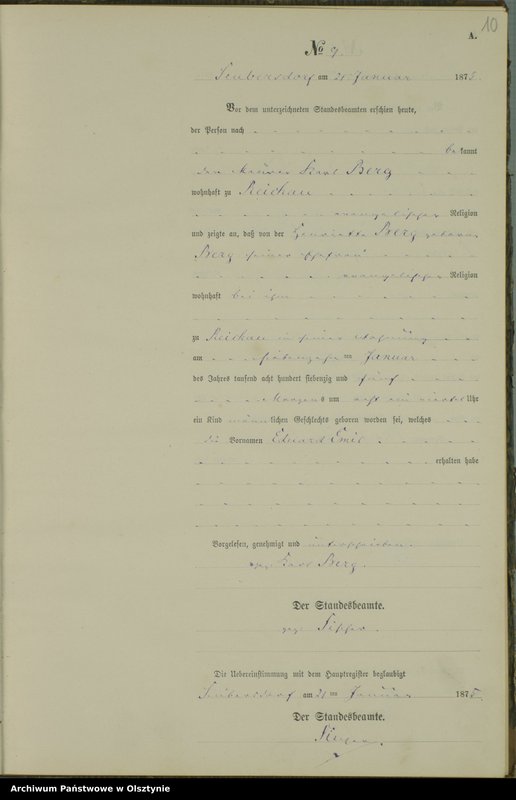 10
A.
No 9.
Seubersdorf am 21 Januar 1875.
Vor dem unterzeichneten Standesbeamten erschien heute,
der Person nach
bekannt
Karl Berg
wohnhaft zu Reichau
evangelischer Religion
und zeigte an, daß von der Henriette Berg geborne
Berg seiner Ehefrau
evangelischer Religion
wohnhaft bei ihm
zu Reichau in seiner Wohnung
am ten Januar
des Jahres tausend acht hundert siebenzig und fünf
Morgens um acht ein viertel Uhr
ein Kind männlichen Geschlechts geboren worden sei, welches
die Vornamen Eduard Emil
erhalten habe
Vorgelesen, genehmigt und unterschrieben.
gez. Karl Berg.
Der Standesbeamte.
gez.
Die Uebereinstimmung mit dem Hauptregister beglaubigt
Seubersdorf am 21 ten Januar 1875.
Der Standesbeamte.
Archiwum Państwowe w Olsztynie